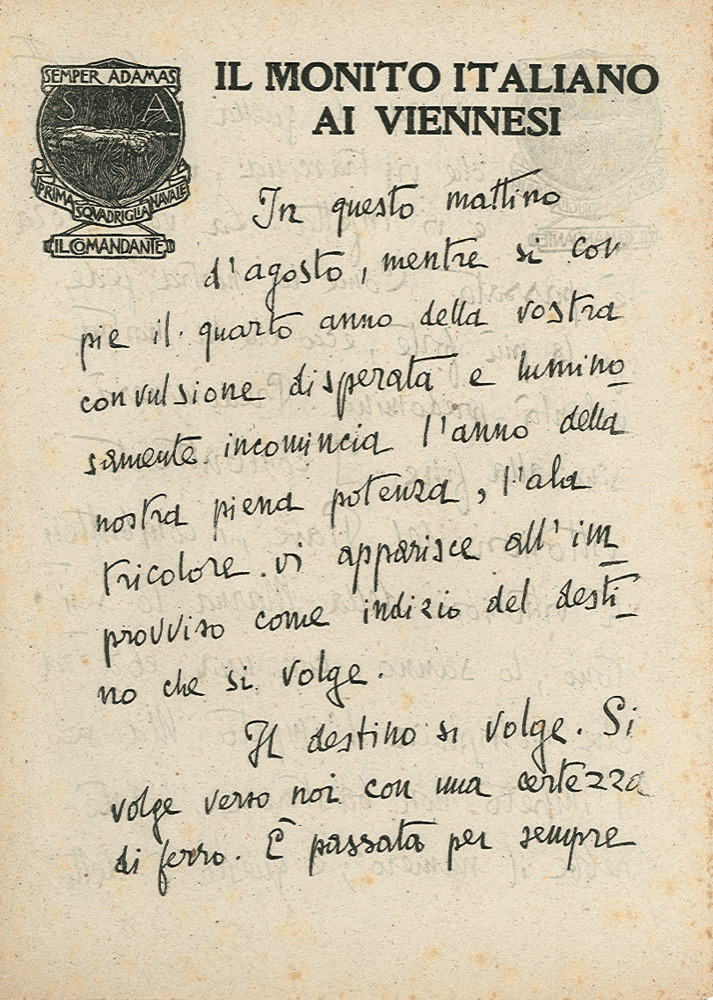 SEMPER ADAMAS
S A
PRIMA SQVADRIGLIA NAVALE
IL COMANDANTE
IL MONITO ITALIANO
AI VIENNESI
In questo mattino
d'agosto, mentre si com
pie il quarto anno della vostra
convulsione disperata e lumino_
samente incomincia l'anno della
nostra piena potenza, l'ala
tricolore vi apparisce all'im_
provviso come indizio del desti_
no che si volge.
Il destino si volge. Si
volge verso noi con una certezza
di ferro. È passata per sempre